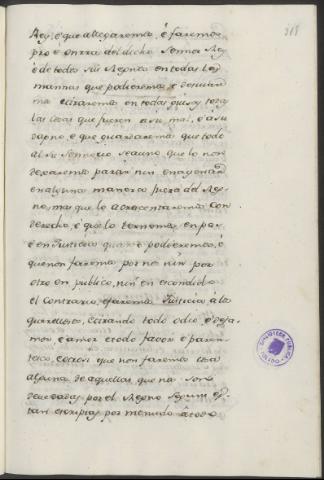 Rey, é que allegaremos, é faremos
pro é onrra del dicho Sennor Rey
é de todos sus Regnos en todas las
maneras que podieremos, é
é escusaremos en todas guisas todas
las cosas que fueren a su mal, é a su
dapno, é que guardaremos que todo
el su Sennorio sea uno, que lo non
dexaremos partir nin enagenar
en alguna manera fuera del Reg-
no, mas que lo acrescentaremos con
derecho, é que lo ternemos en paz
é en Justicia quanto podieremos, é
que non faremos por nos nin por
otro en publico, nin en escondido
el contrario, é faremos Justicia a los
querellosos, tirando todo odio, é desa-
mor, é amor, é todo favor é paren-
tesco, é otrosi que non faremos cosa
alguna de aquellas que nos son
devedadas por el Regno segunt es-
tan escriptas por menudo
318
BIBLIOTECA PUBLICA
TOLEDO